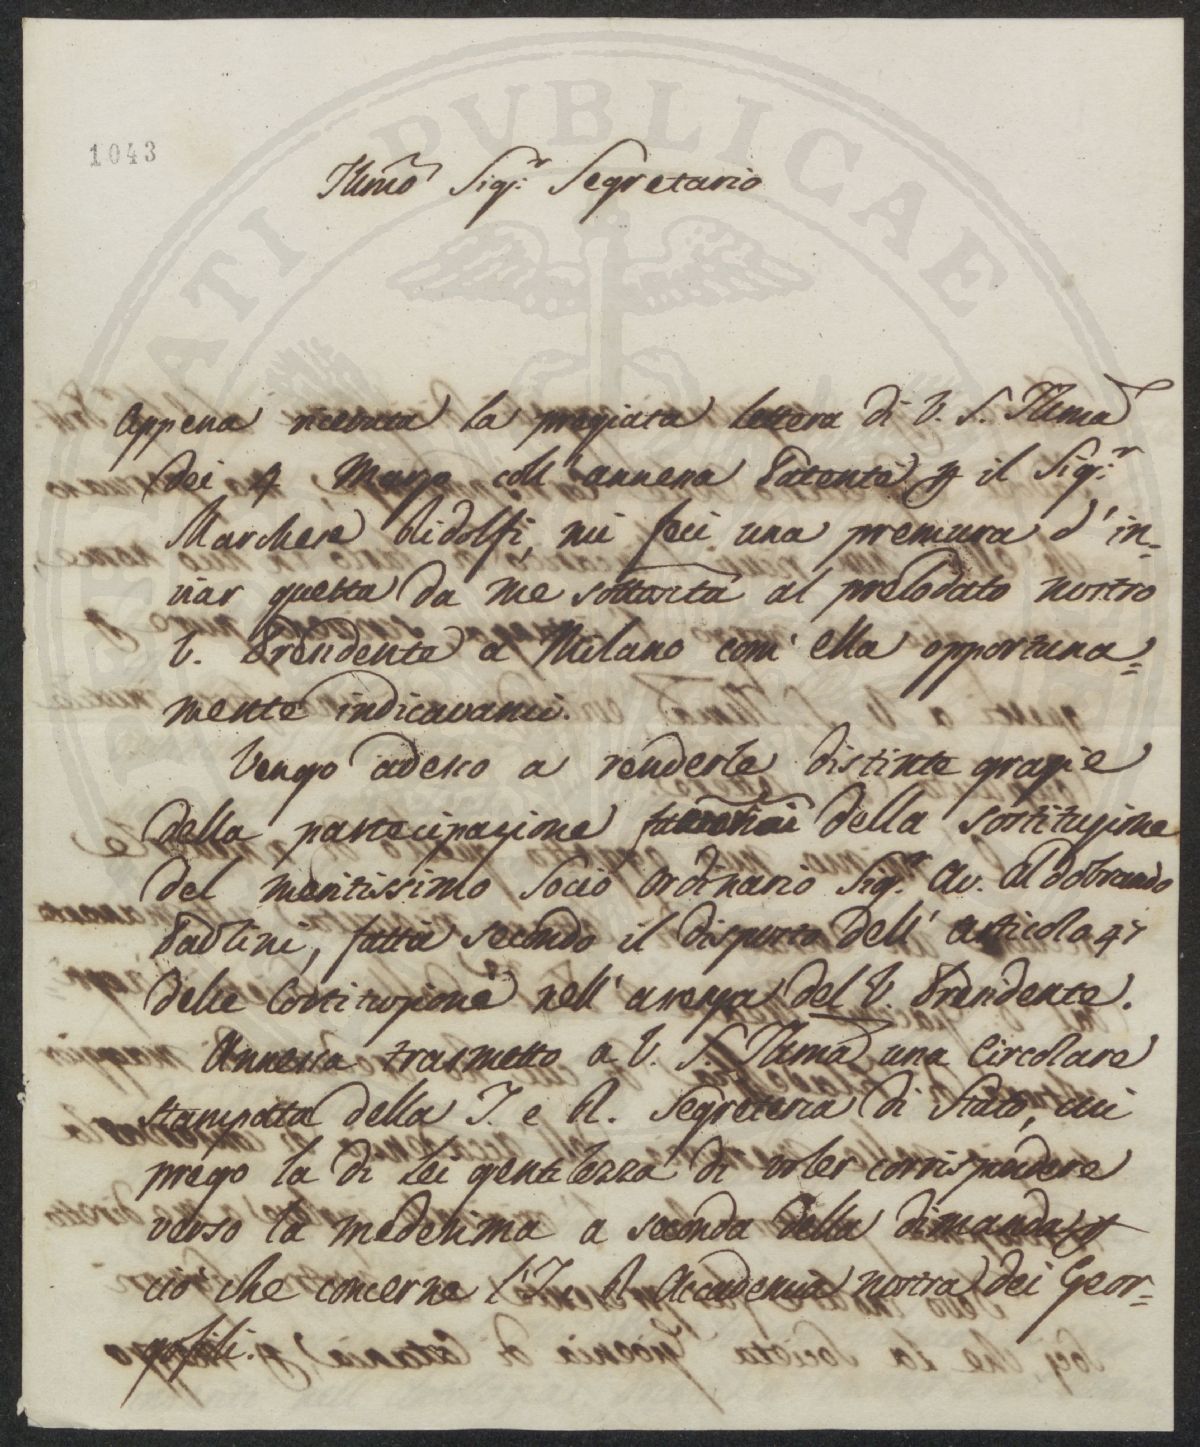 1043
Illmo Sig.r Segretario
Appena ricevuta la pregiata lettera di V. S. Illma
dei 4 Marzo coll' annessa Patente p il Sig.r
Marchese Ridolfi, mi feci una premura d' in=
viar questa da me sottoscritta al prelodato nostro
V. Presidente a Milano com' ella opportuna=
mente indicavami.
Vengo adesso a renderle distinte grazie
della partecipazione della sostituzione
del meritissimo Socio Ordinario Sig.r Av. Aldobrando
Paolini, fatta secondo il disposto dell' articolo 47
delle Costituzioni nell' assenza del V. Presidente.
Annessa trasmetto a V. S. Illma una Circolare
stampata della I. e R. Segreteria di Stato, cui
prego la di Lei gentilezza di voler corrispondere
verso la medesima a seconda della dimanda p
ciò che concerne l'I. e R. Accademia nostra dei Geor=
gofili.
PUBLICAE